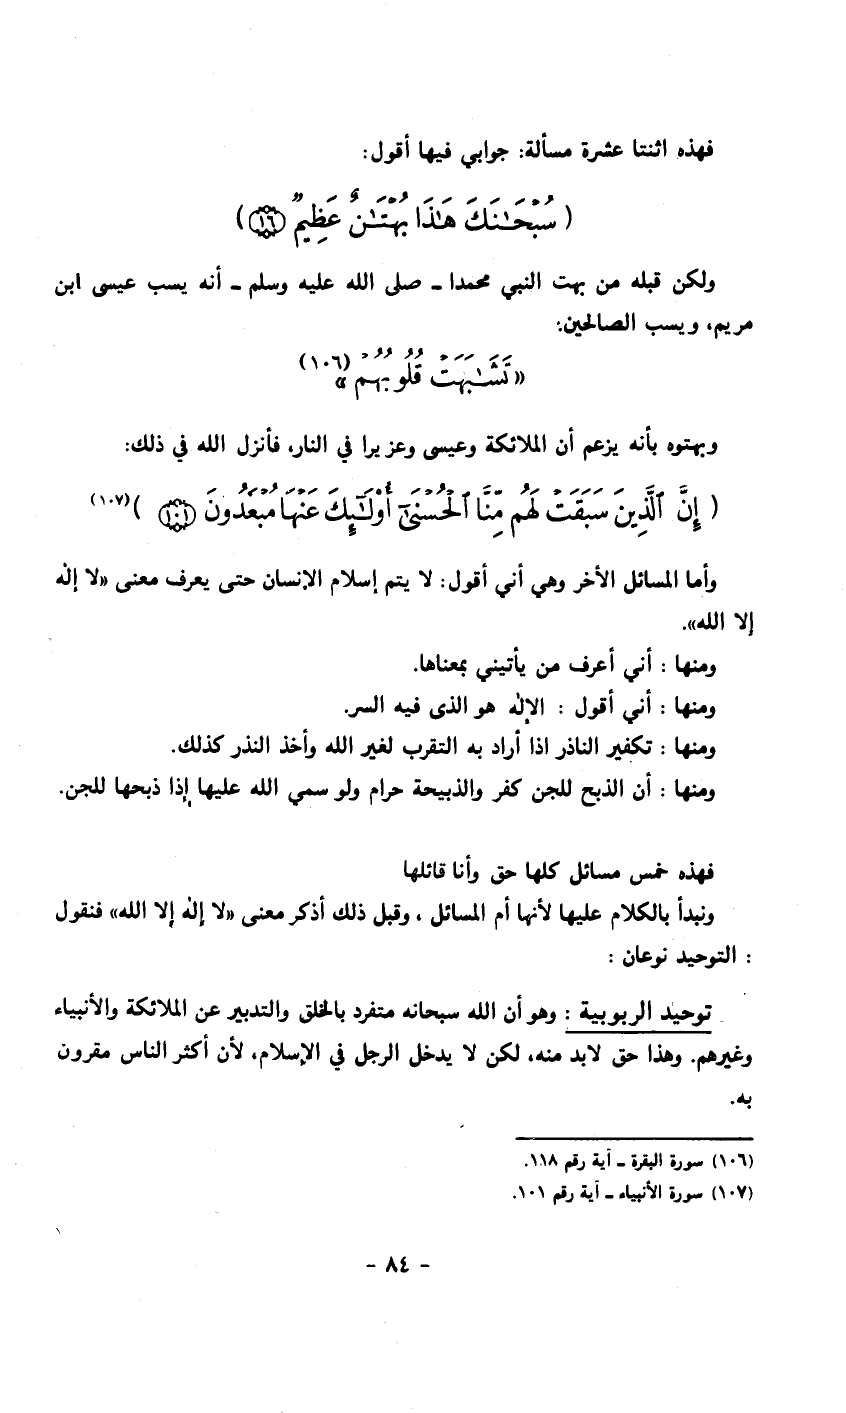 فهذه اثنتا عشرة مسألة: جوابي فيها أقول:
( سُبْحَـٰنَكَ هَـٰذَا بُهْتَـٰنٌ عَظِيمٌ ١٦ )
ولكن قبله من بهت النبي محمدا ـ صلى الله عليه وسلم ـ أنه يسب عيسى ابن
مريم، ويسب الصالحين:
« تَشَـٰبَهَتْ قُلُوبُهُمْ » (١٠٦)
وبهتوه بأنه يزعم أن الملائكة وعيسى وعزيرا في النار، فأنزل الله في ذلك:
( إِنَّ ٱلَّذِينَ سَبَقَتْ لَهُم مِّنَّا ٱلْحُسْنَىٰٓ أُوْلَـٰٓئِكَ عَنْهَا مُبْعَدُونَ ١٠١ ) (١٠٧)
وأما المسائل الأخر وهي أني أقول: لا يتم إسلام الإنسان حتى يعرف معنى «لا إلٰه
إلا الله».
ومنها : أني أعرف من يأتيني بمعناها.
ومنها : أني أقول : الإلٰه هو الذى فيه السر.
ومنها : تكفير الناذر اذا أراد به التقرب لغير الله وأخذ النذر كذلك.
ومنها : أن الذبح للجن كفر والذبيحة حرام ولو سمي الله عليها إذا ذبحها للجن.
فهذه خمس مسائل كلها حق وأنا قائلها
ونبدأ بالكلام عليها لأنها أم المسائل ، وقبل ذلك أذكر معنى «لا إلٰه إلا الله» فنقول
: التوحيد نوعان :
توحيد الربوبية : وهو أن الله سبحانه متفرد بالخلق والتدبير عن الملائكة والأنبياء
وغيرهم. وهذا حق لابد منه، لكن لا يدخل الرجل في الإسلام، لأن أكثر الناس مقرون
به.
(١٠٦) سورة البقرة ـ آية رقم ١١٨.
(١٠٧) سورة الأنبياء ـ آية رقم ١٠١.
- ٨٤ -